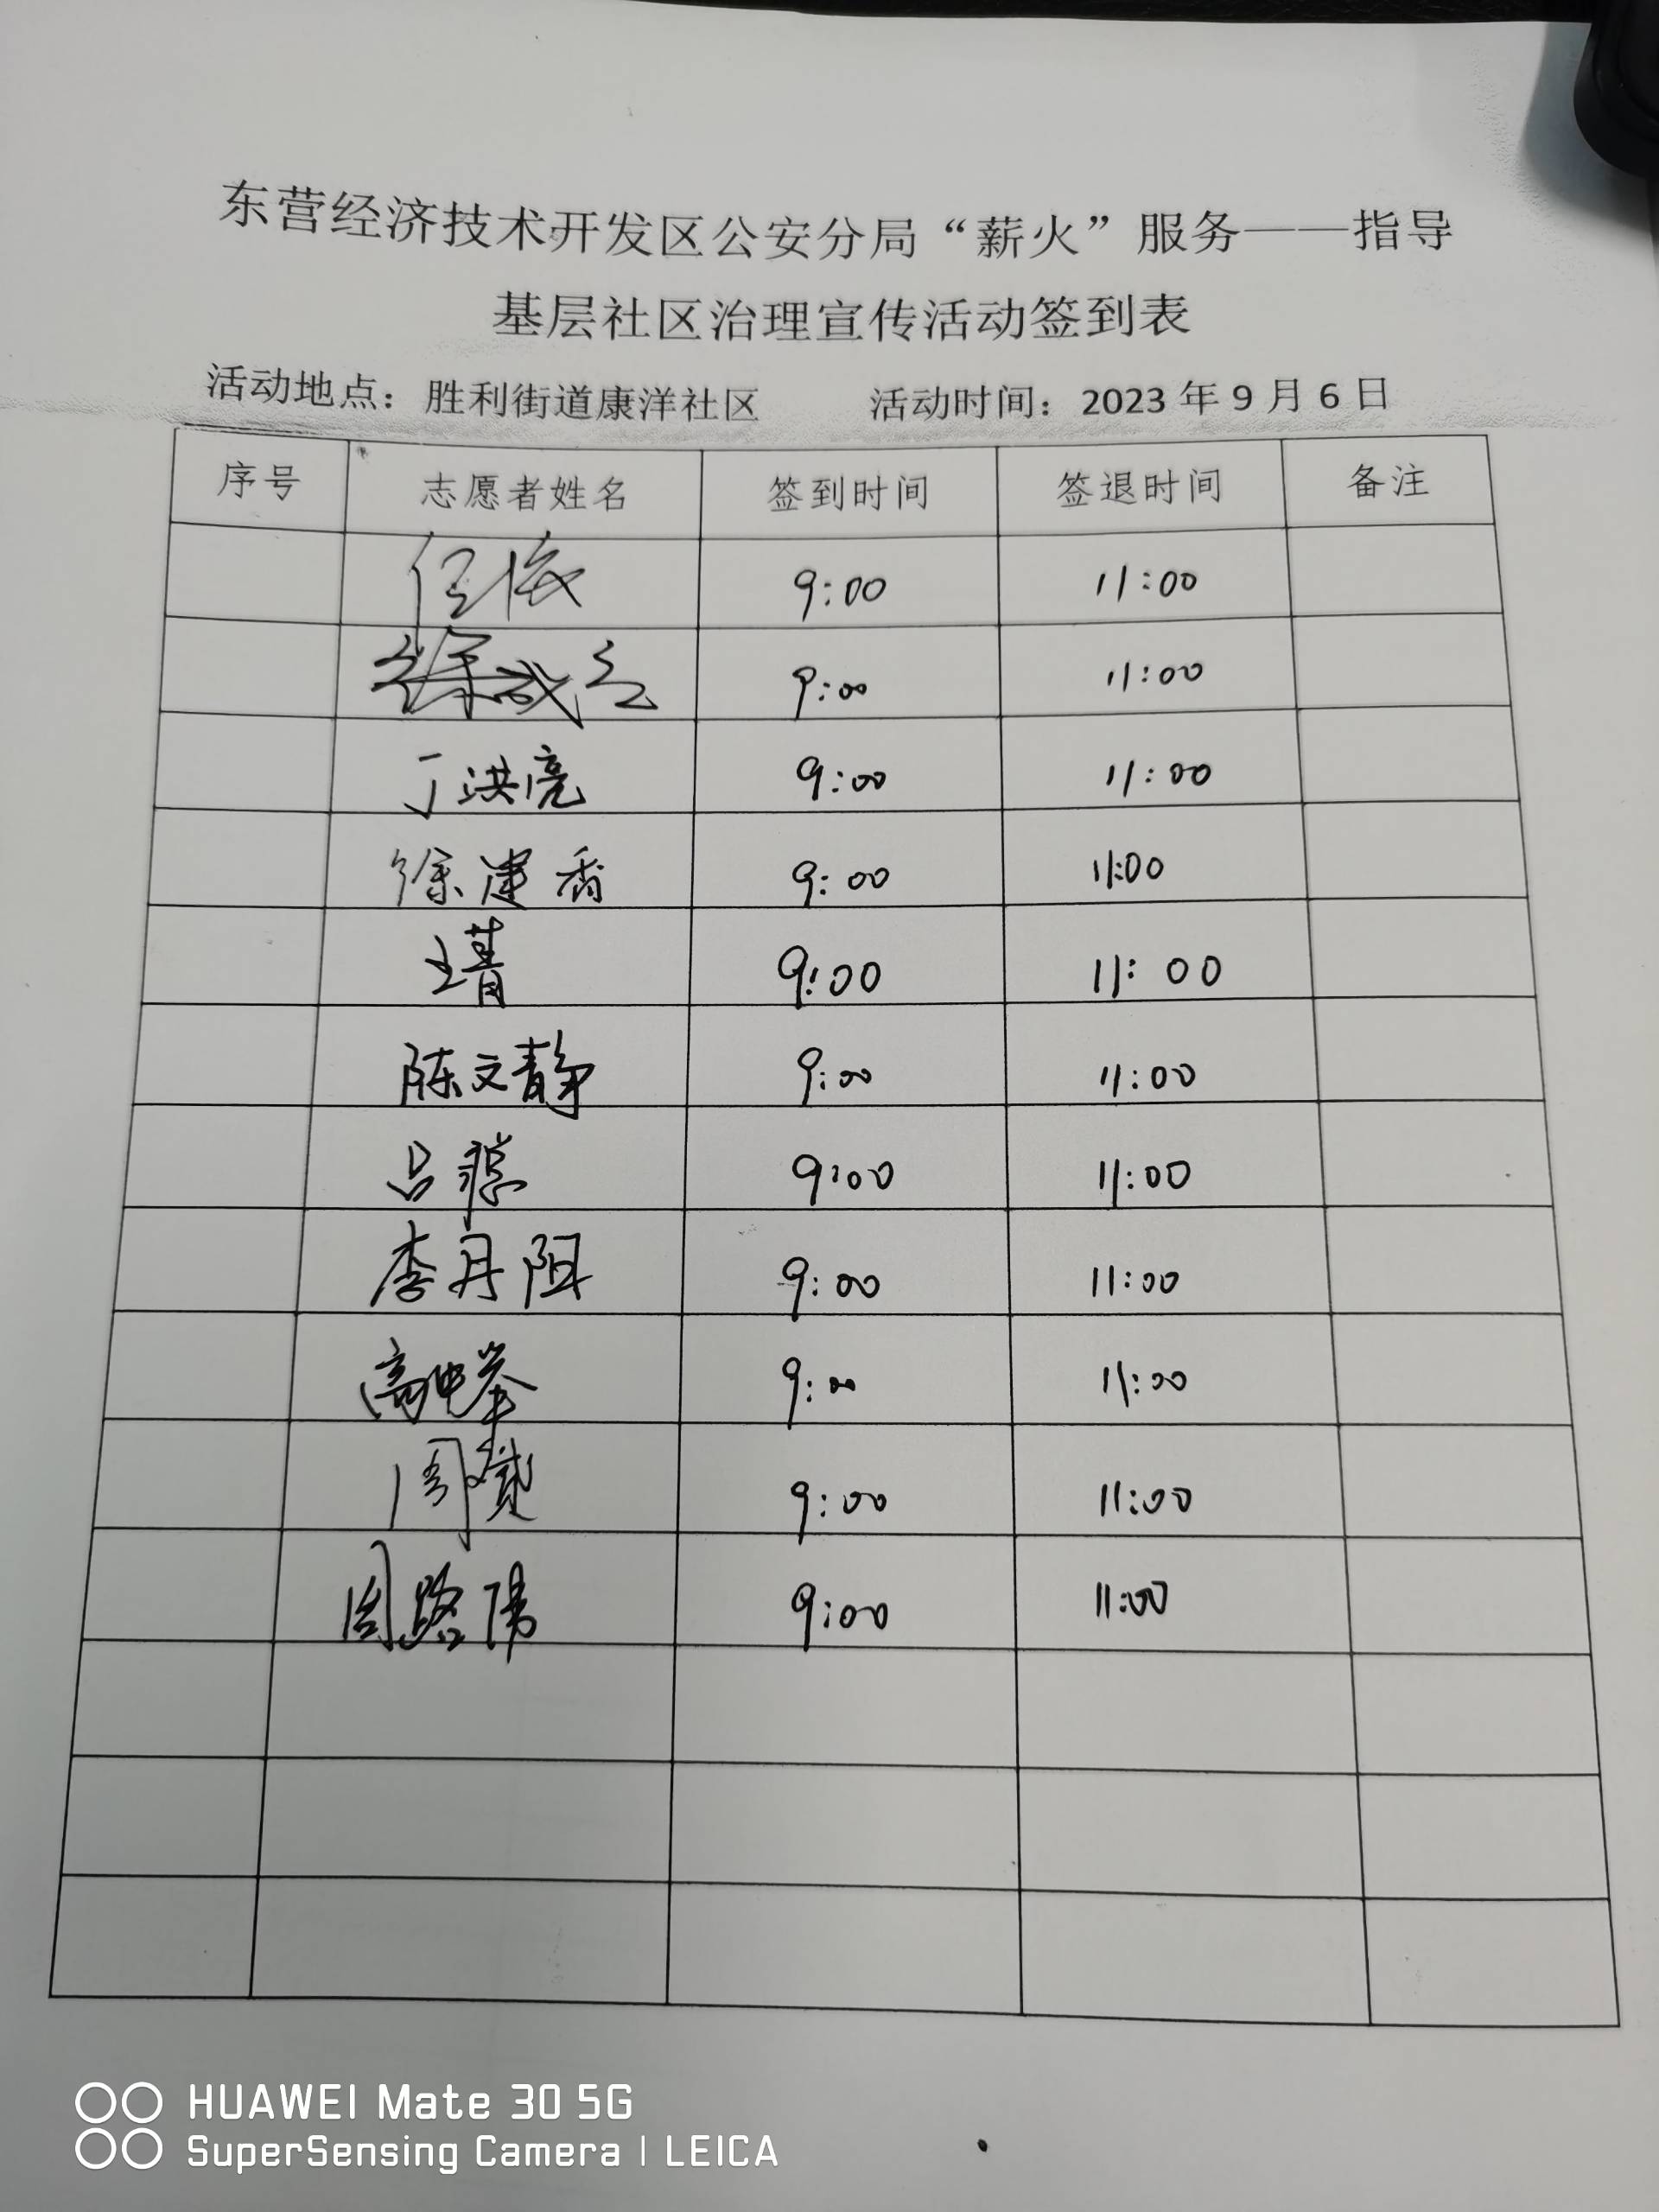 东营经济技术开发区公安分局“薪火”服务——指导
基层社区治理宣传活动签到表
活动地点：胜利街道康洋社区 活动时间：2023年9月6日
序号 志愿者姓名 签到时间 签退时间 备注
任依 9:00 11:00
徐成 9:00 11:00
丁洪亮 9:00 11:00
徐建香 9:00 11:00
王菁 9:00 11:00
陈文静 9:00 11:00
吕聪 9:00 11:00
李丹阳 9:00 11:00
高 9:00 11:00
周贇 9:00 11:00
周路伟 9:00 11:00
HUAWEI Mate 30 5G
SuperSensing Camera | LEICA